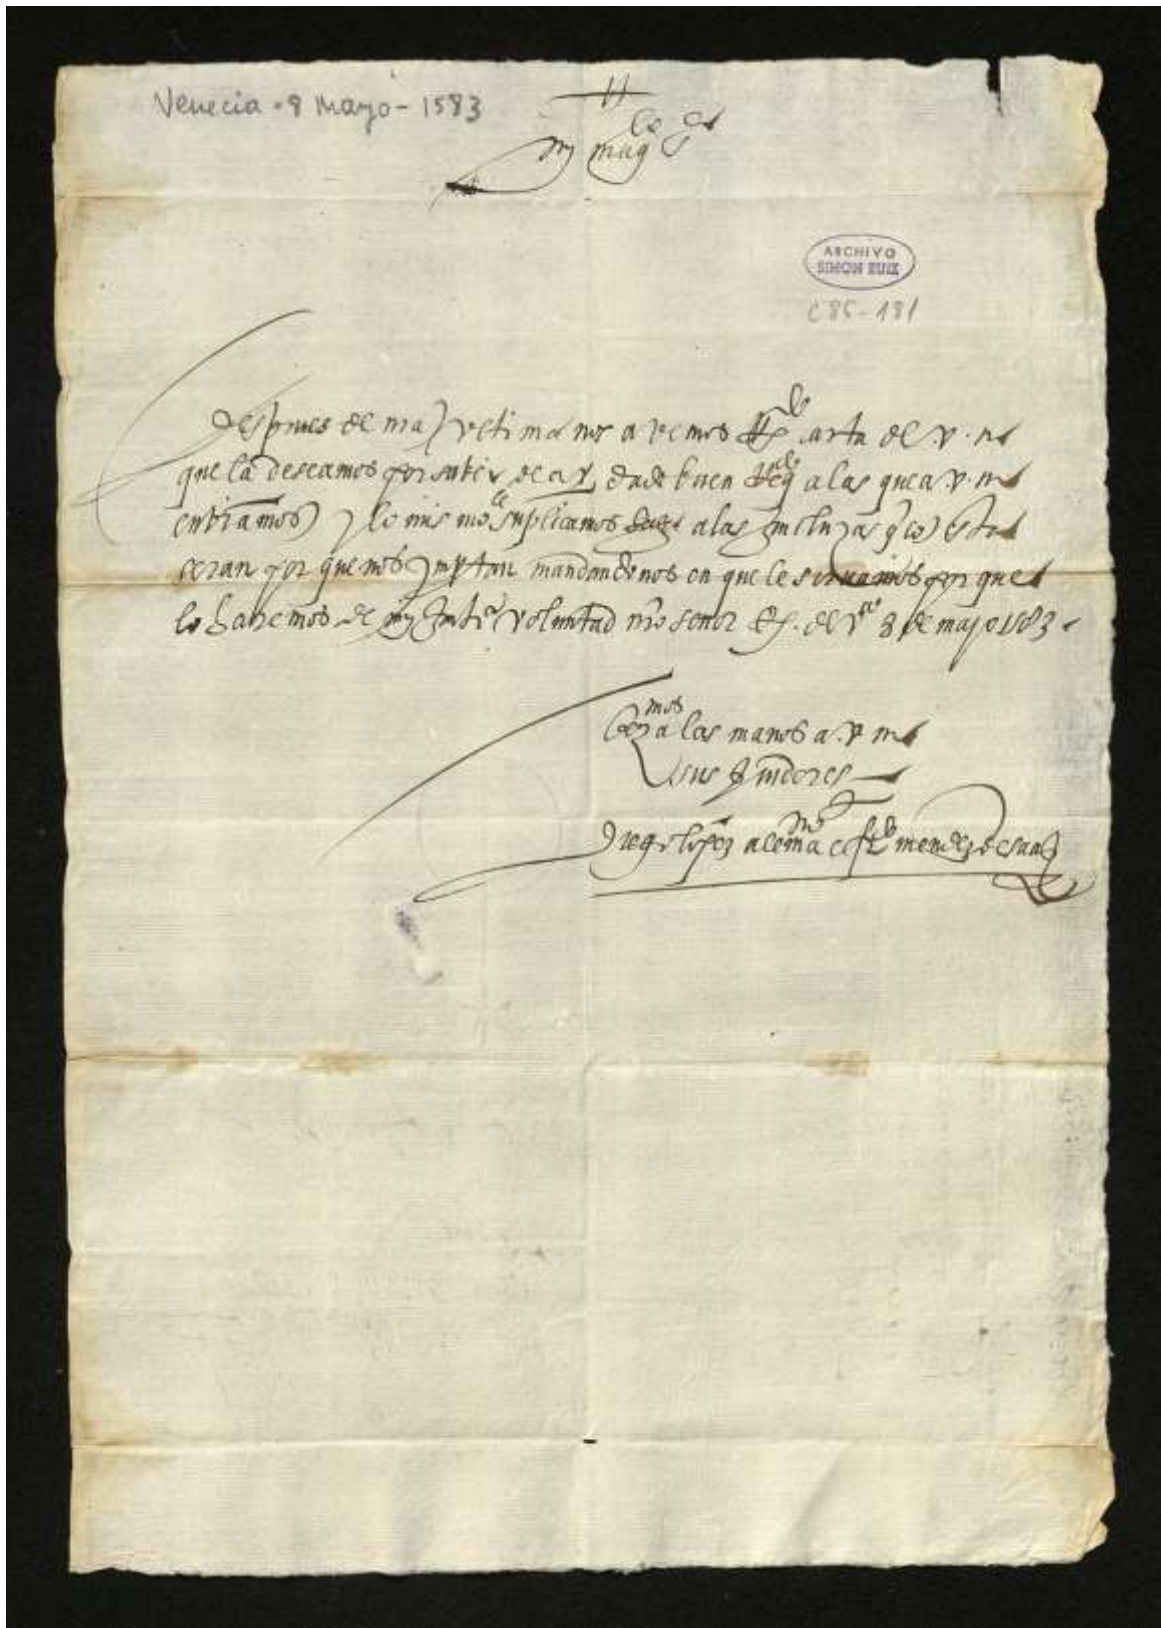 Venecia - 8 Mayo - 1583
my magco sor
ARCHIVO
SIMON RUIZ
C 85 - 181
Despues de nra ultima no avemos Rdo carta de v. m
que la deseamos por saber de aver dado buen Rdo a las que a v. m
enbiamos y lo mismo le suplicamos a las ynclusas q con esta
seran por que nos ynportan mandandonos en que le sirvamos por que
lo haremos de muy entera voluntad nro señor de va 8 de mayo 1583
Bezamos las manos a v m
sus servidores
Diego lopez aleman e mendez